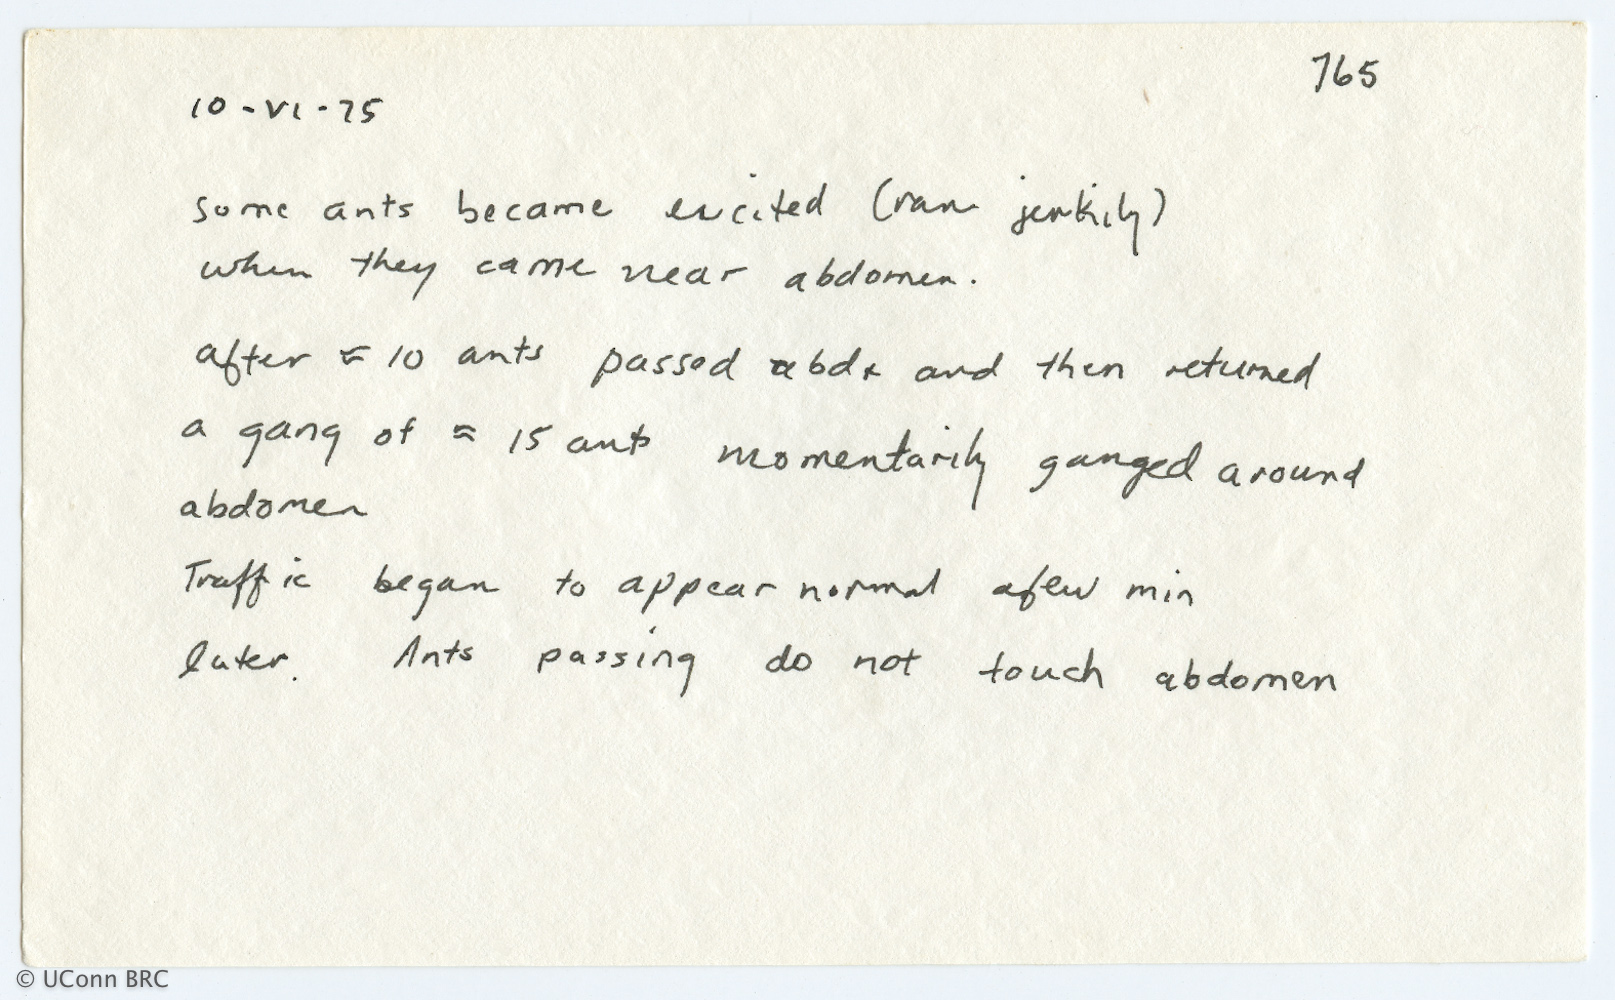 765
10-VI-75
some ants became excited (ran jerkily)
when they came near abdomen.
after ≈ 10 ants passed abd. and then returned
a gang of ≈ 15 ants momentarily ganged around
abdomen
Traffic began to appear normal a few min
later. Ants passing do not touch abdomen
© UConn BRC